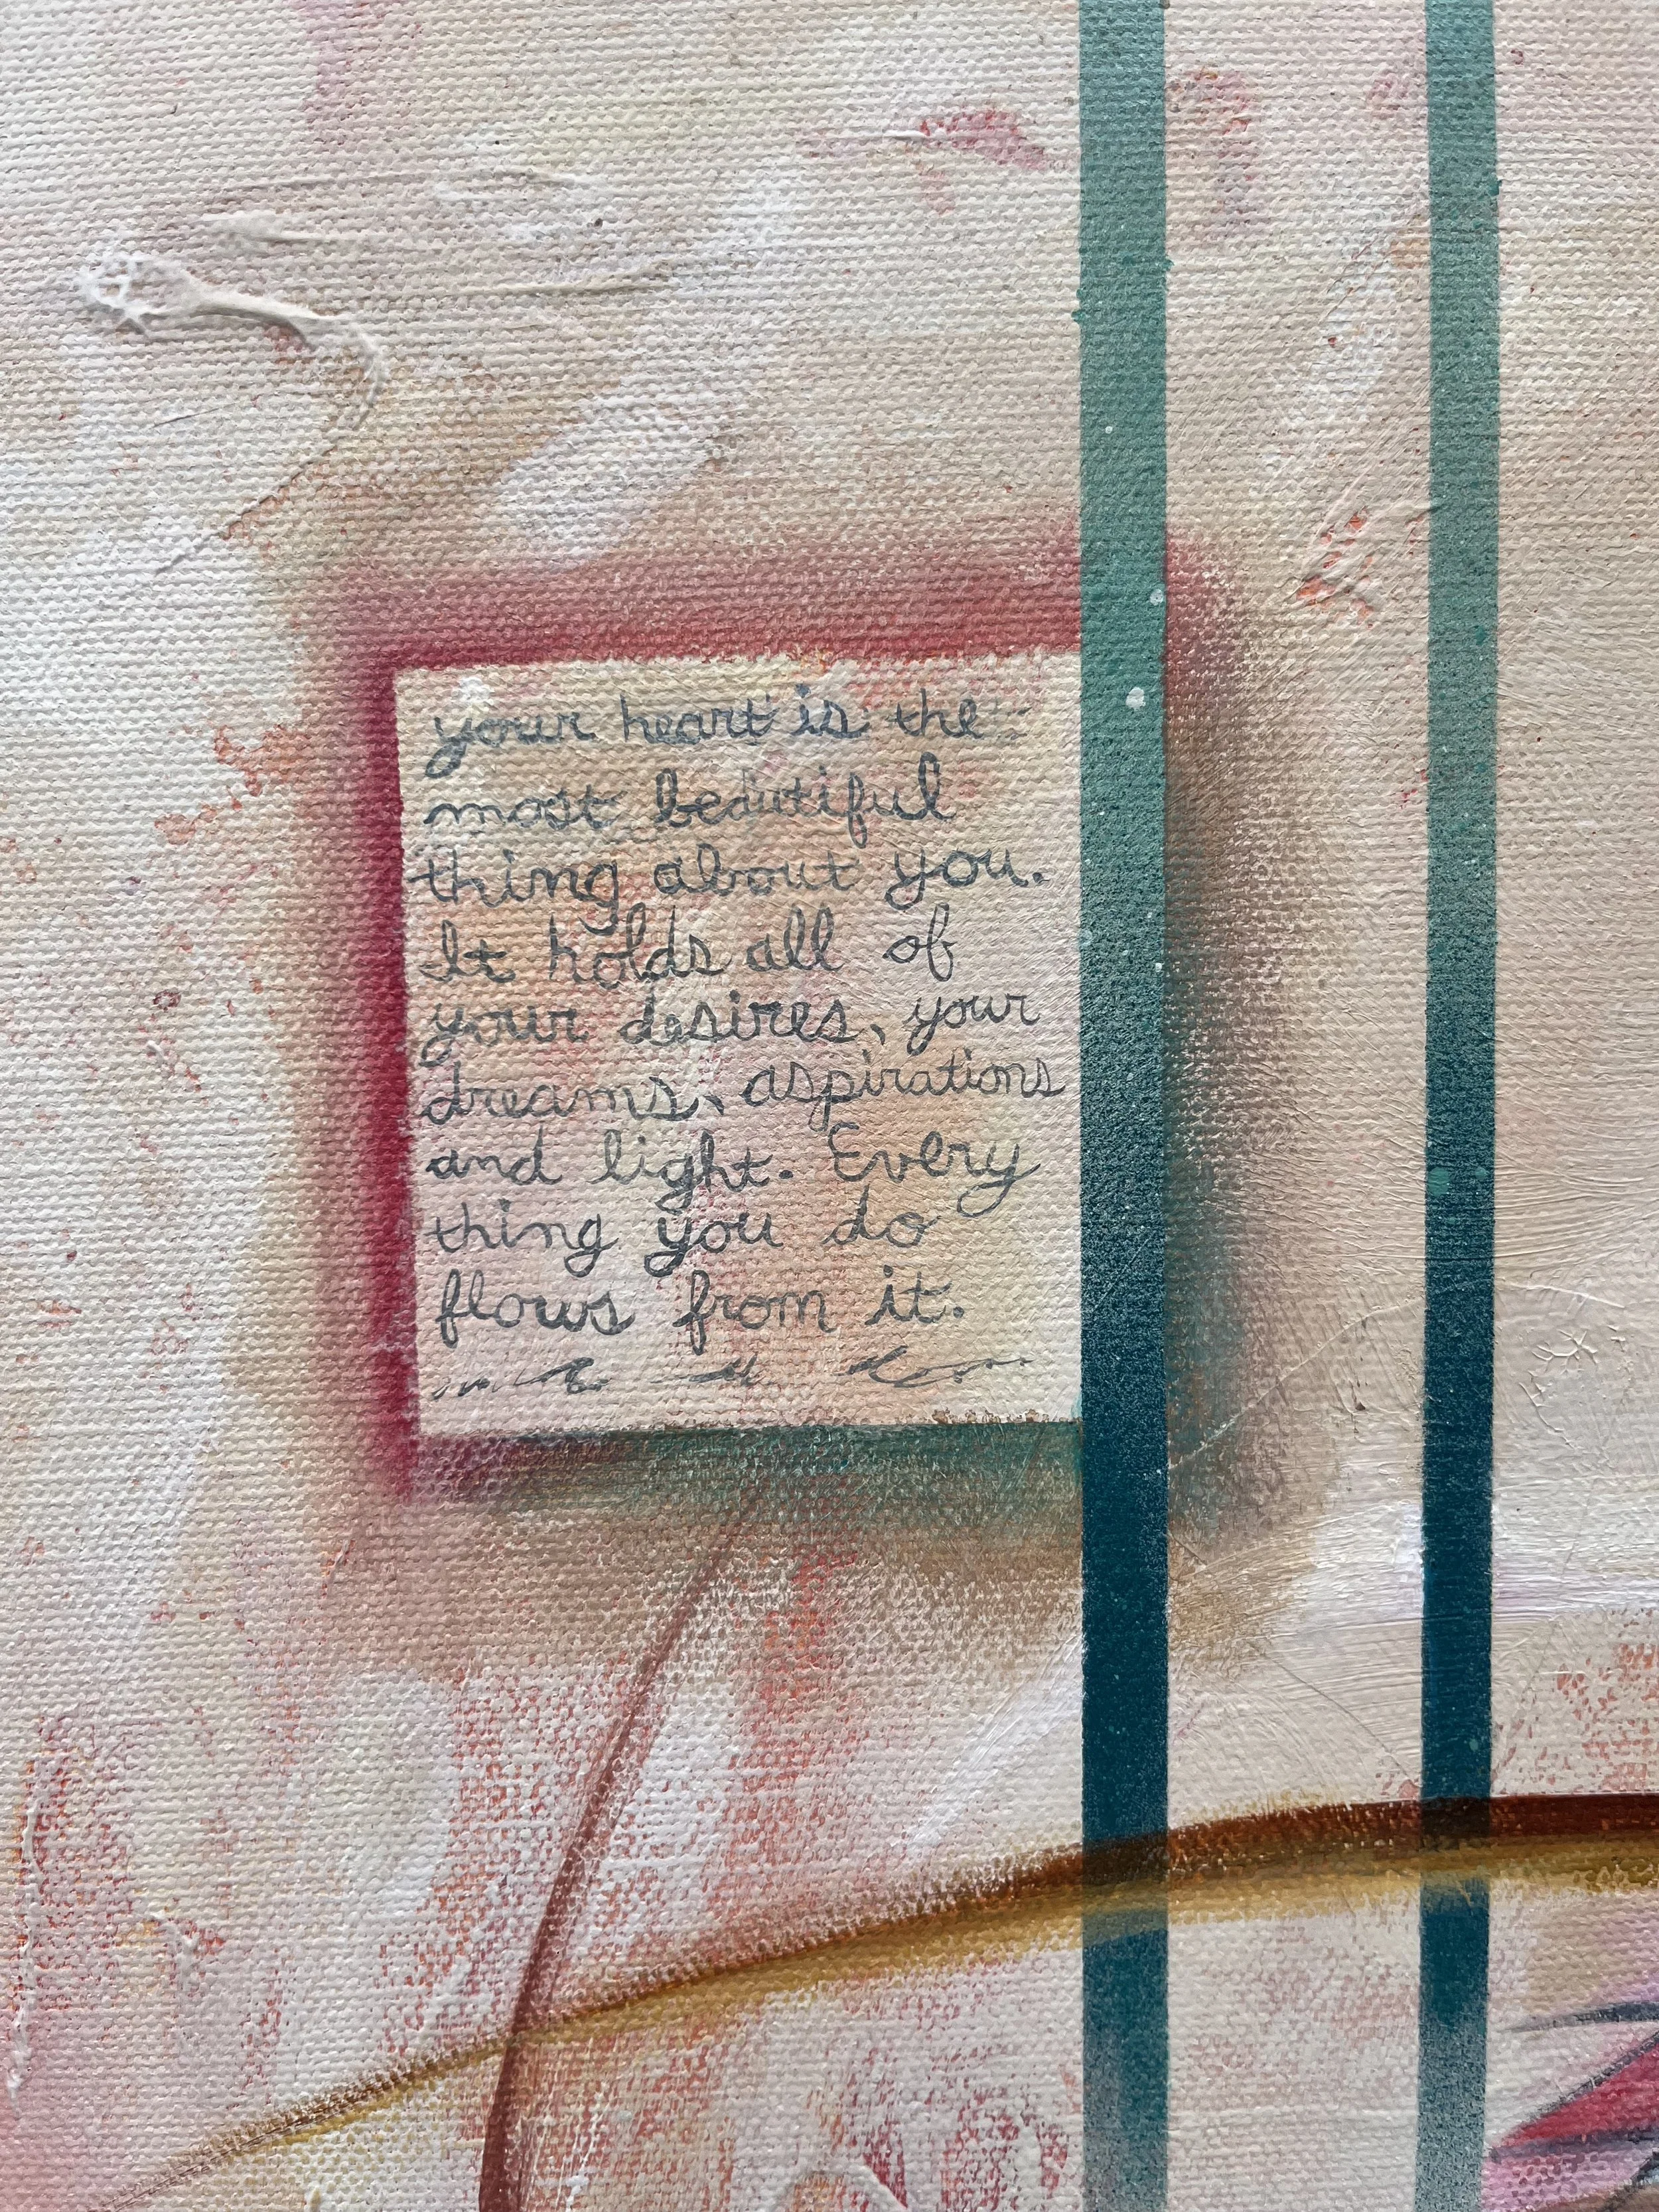 your heart is the
most beautiful
thing about you.
It holds all of
your desires, your
dreams, aspirations
and light. Every
thing you do
flows from it.